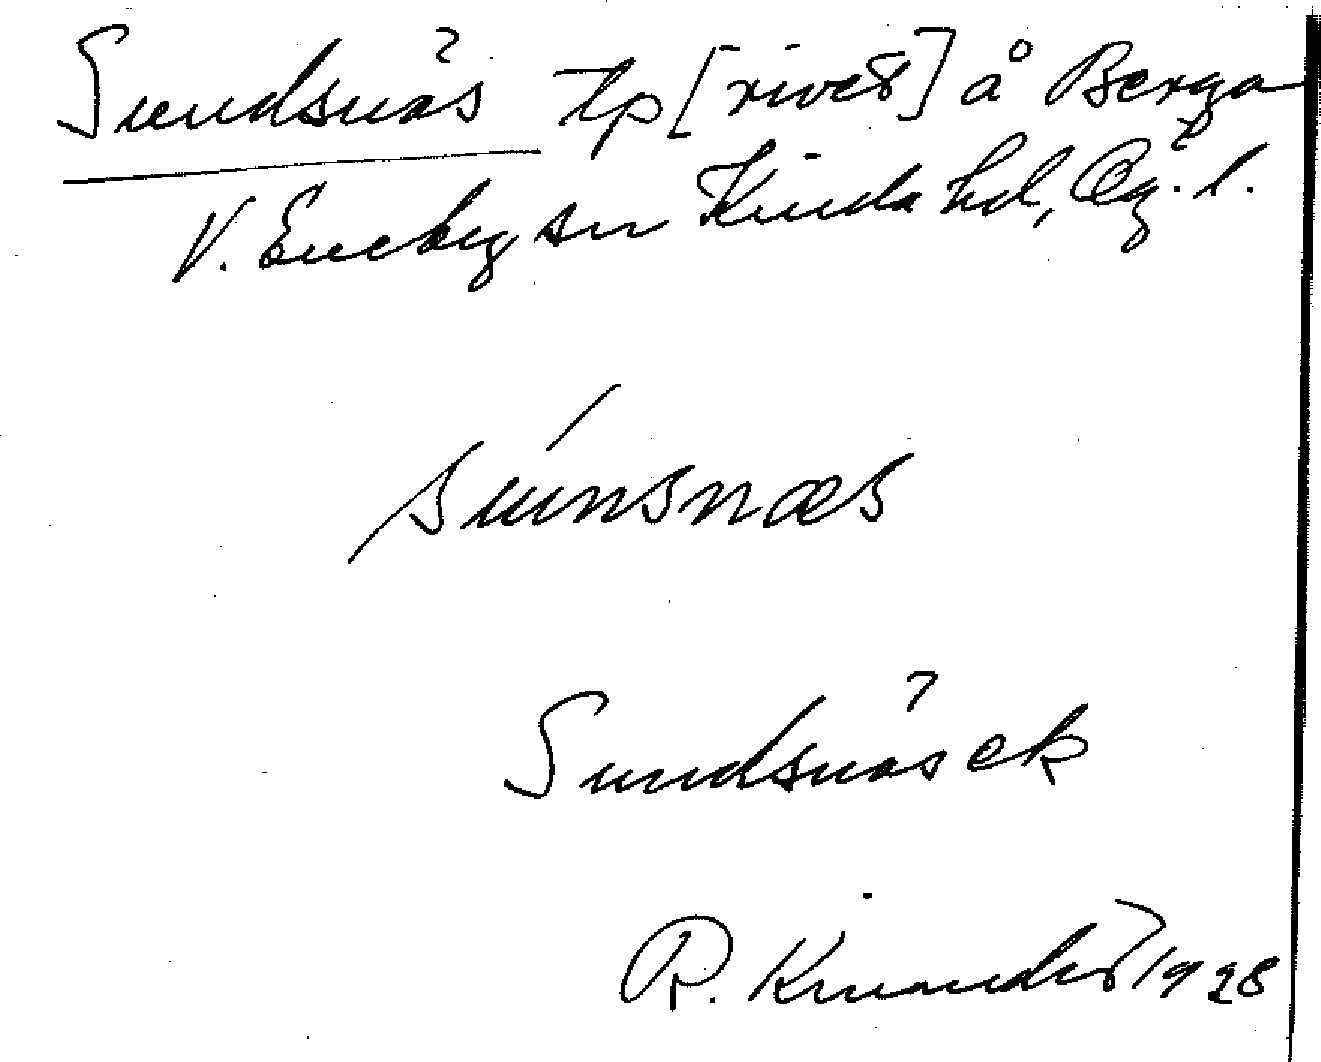 Sundsnäs tp [rivet] å Berga
V. Eneby sn Kinda hd, Ög. l.
su̇nsnæs
Sundsnäsek
R. Kinander 1928